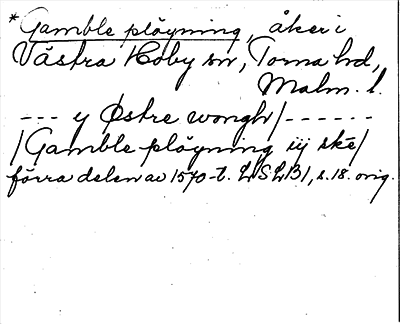 *Gamble plöyning, åker i
Västra Hoby sn, Torna hd,
Malm. l.
--- y Østre wongh/------
/Gamble plöyning iij ske/
förra delen av 1570-t. LSLB1, s. 18. orig.